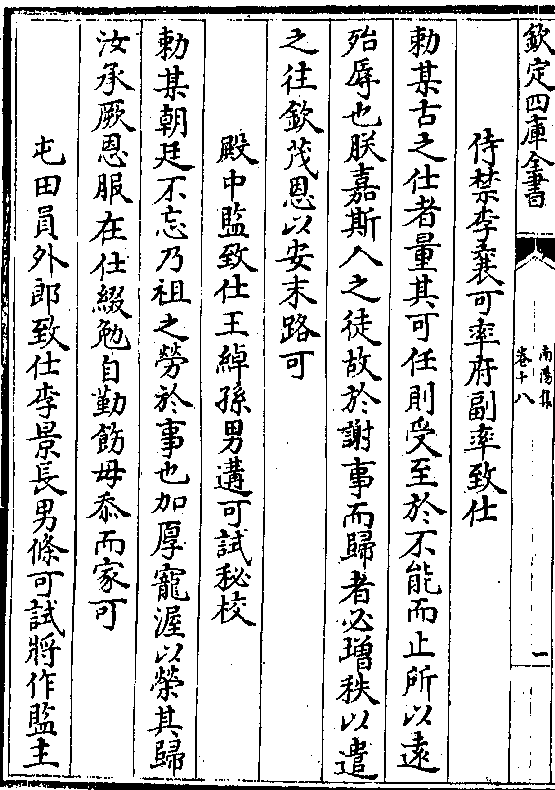 欽定四庫全書
南陽集
卷十八
一
侍禁李義可率府副率致仕
勅某古之仕者量其可任則受至於不能而止所以遠
殆辱也朕嘉斯人之徒故於謝事而歸者必増秩以遣
之往欽茂恩以安末路可
殿中監致仕王綽孫男遘可試秘校
勅某朝廷不忘乃祖之勞於事也加厚寵渥以榮其歸
汝承厥恩服在仕綴勉自勤飭毋忝而家可
屯田員外郎致仕李景長男條可試將作監主